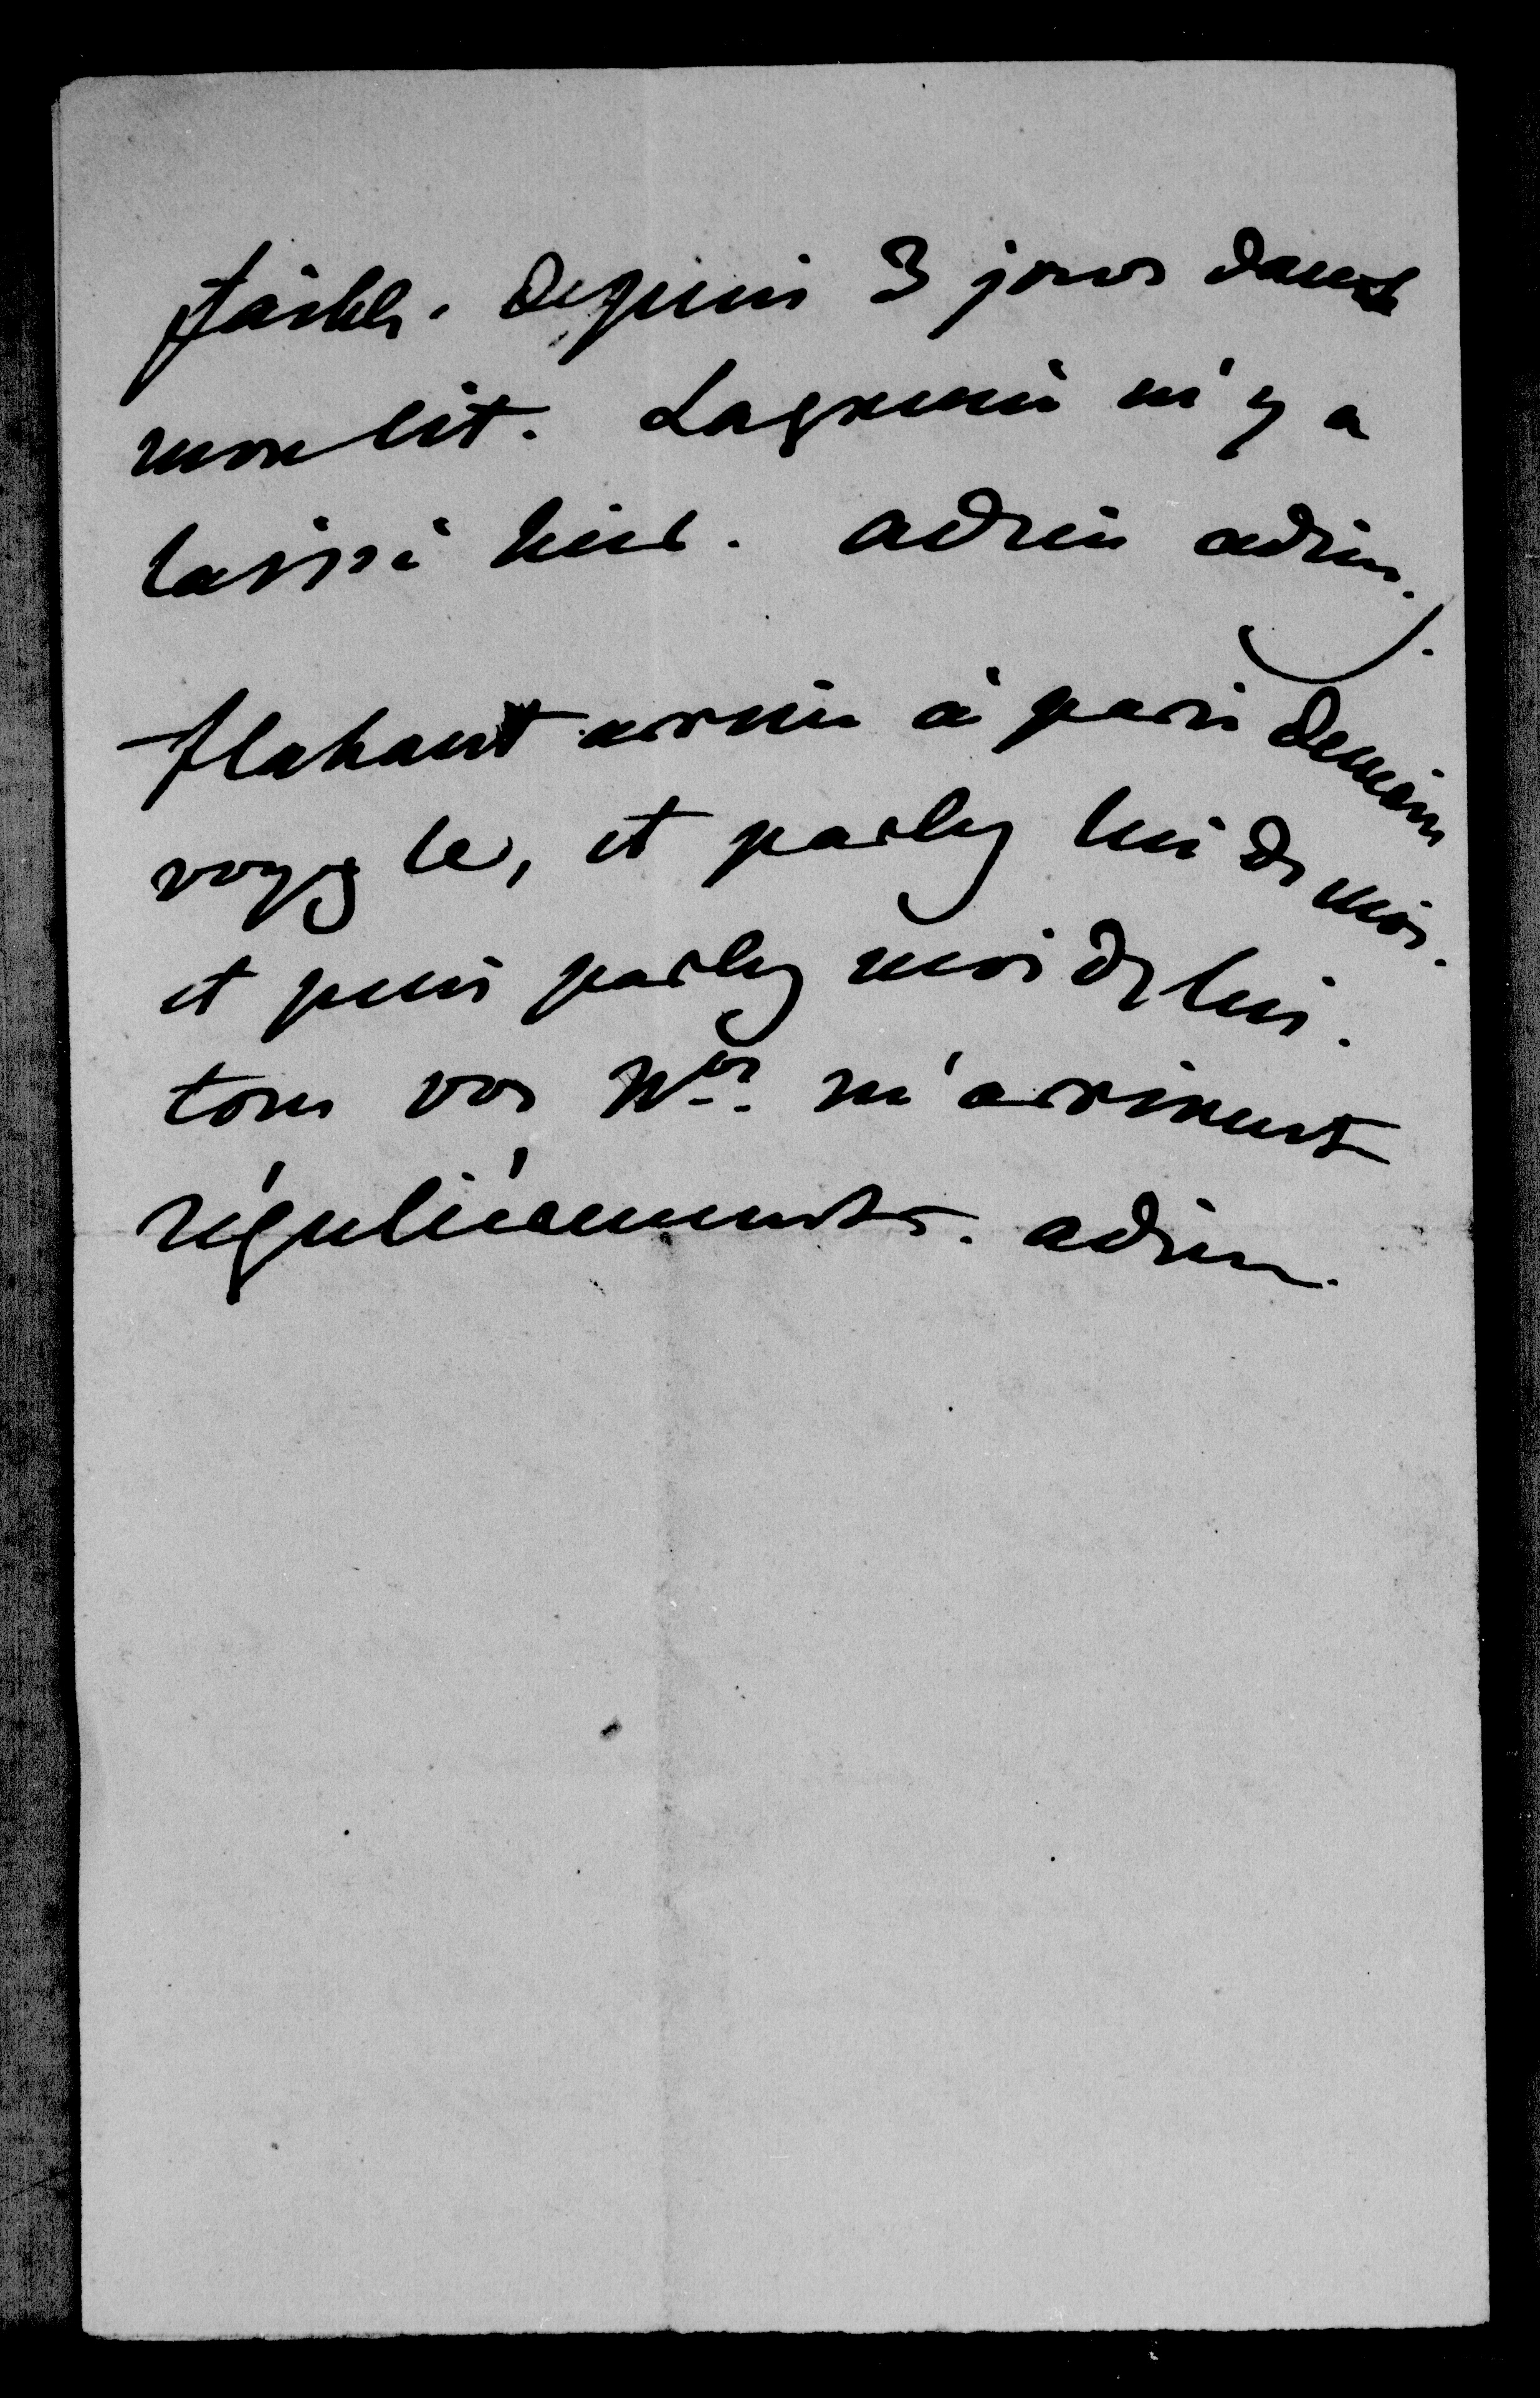 faible. Depuis 3 jours dans
mon lit. La grippe m'y a
laissé hier. adieu adieu.
flahaut arrive à paris demain
voyez le, et parlez lui de moi.
et puis parlez moi de lui.
tous vos Nos. m'arrivent
régulièrement. adieu.